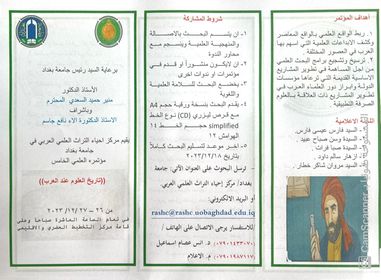 برعاية السيد رئيس جامعة بغداد
الأستاذ الدكتور
منير حميد السعدي المحترم
وبإشراف
الأستاذ الدكتورة الاء نافع جاسم
يقيم مركز احياء التراث العلمي العربي في
جامعة بغداد
مؤتمره العلمي الخامس
((تاريخ العلوم عند العرب))
من ٢٦ – ٢٧ / ١٢ / ٢٠٢٣
في تمام الساعة العاشرة صباحا وعلى
قاعة مركز التخطيط الحضري والاقليمي
شروط المشاركة
١- ان يتسم البحث بالاصالة
والمنهجية العلمية وينسجم مع
محاور الندوة
٢- ان لايكون منشورا او قدم في
مؤتمرات او ندوات اخرى
٣- يخضع البحث للسلامة العلمية
والفكرية
٤- يقدم البحث بنسخة ورقية حجم A4
مع قرص ليزري (CD) نوع الخط
simplified حجم الخط ١٤
الهوامش ١٢
٥- اخر موعد لتسليم البحث كاملاً
٢٠٢٣/١٢/١٨
ترسل البحوث على العنوان الآتي: جامعة
بغداد/ مركز إحياء التراث العلمي العربي
او البريد الالكتروني:
rashc@rashc.uobaghdad.edu.iq
للاستفسار يرجى الاتصال على الهاتف /
أ.د. انس عصام اسماعيل
م. الاعلام
اهداف المؤتمر
١. ربط الواقع العلمي بالواقع المعاصر
وكشف الابداعات العلمية التي اسهم بها
العرب في العصور المختلفة.
٢. ترسيخ وتشجيع برامج البحث العلمي
من اجل المساهمة في تطوير المشاريع
الاساسية القديمة التي ترعاها مؤسسات
الدولة وابراز دور العلماء العرب في
تطوير المشاريع ذات العلاقة بالعلوم
الصرفة الطبيعية.
اللجنة الاعلامية
١- السيد فارس عيسى فارس.
٢- السيدة وسن صباح عبيد
٣- السيدة صبا فرات
٤- ازهار سالم داود.
٥- السيد مروان شاكر خطار.
CamScanner